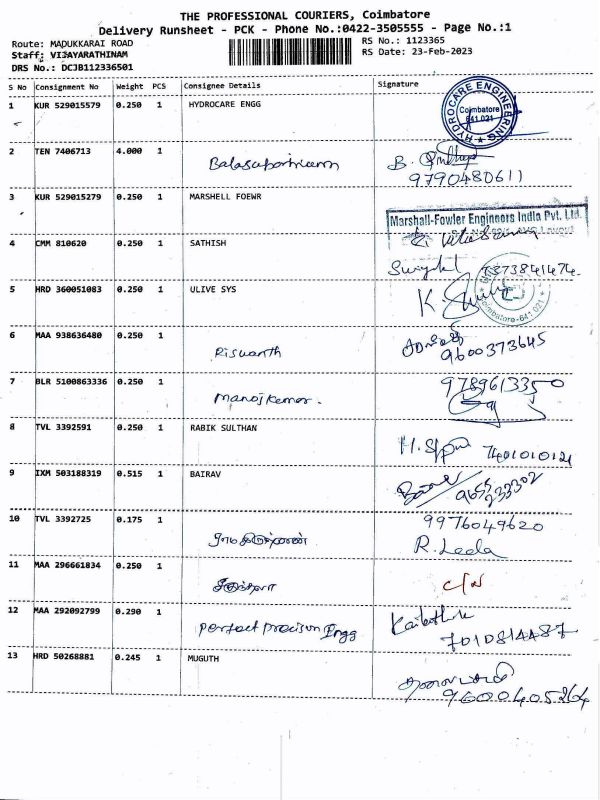 THE PROFESSIONAL COURIERS, Coimbatore
Delivery Runsheet - PCK - Phone No.:0422-3505555 - Page No.:1
Route: MADUKKARAI ROAD
RS No.: 1123365
Staff: VIJAYARATHINAM
RS Date: 23-Feb-2023
DRS No.: DCJB112336501
S No Consignment No Weight PCS Consignee Details Signature
1 KUR 529015579 0.250 1 HYDROCARE ENGG
HYDROCARE ENGINEERING
Coimbatore
641 021
2 TEN 7406713 4.000 1 B.
9790480611
3 KUR 529015279 0.250 1 MARSHELL FOEWR
Marshall-Fowler Engineers India Pvt. Ltd.
4 CMM 810620 0.250 1 SATHISH
7373841474
5 HRD 360051083 0.250 1 ULIVE SYS K.
Coimbatore-641 021
6 MAA 938636480 0.250 1 Riswanth
9600373645
7 BLR 5100863336 0.250 1 manojkumar. 9789613350
8 TVL 3392591 0.250 1 RABIK SULTHAN
7401010121
9 IXM 503188319 0.515 1 BAIRAV
9655233302
10 TVL 3392725 0.175 1 9976049620
R. Leela
11 MAA 296661834 0.250 1
12 MAA 292092799 0.290 1 perfact precison Engg
7010814487
13 HRD 50268881 0.245 1 MUGUTH
9600405264